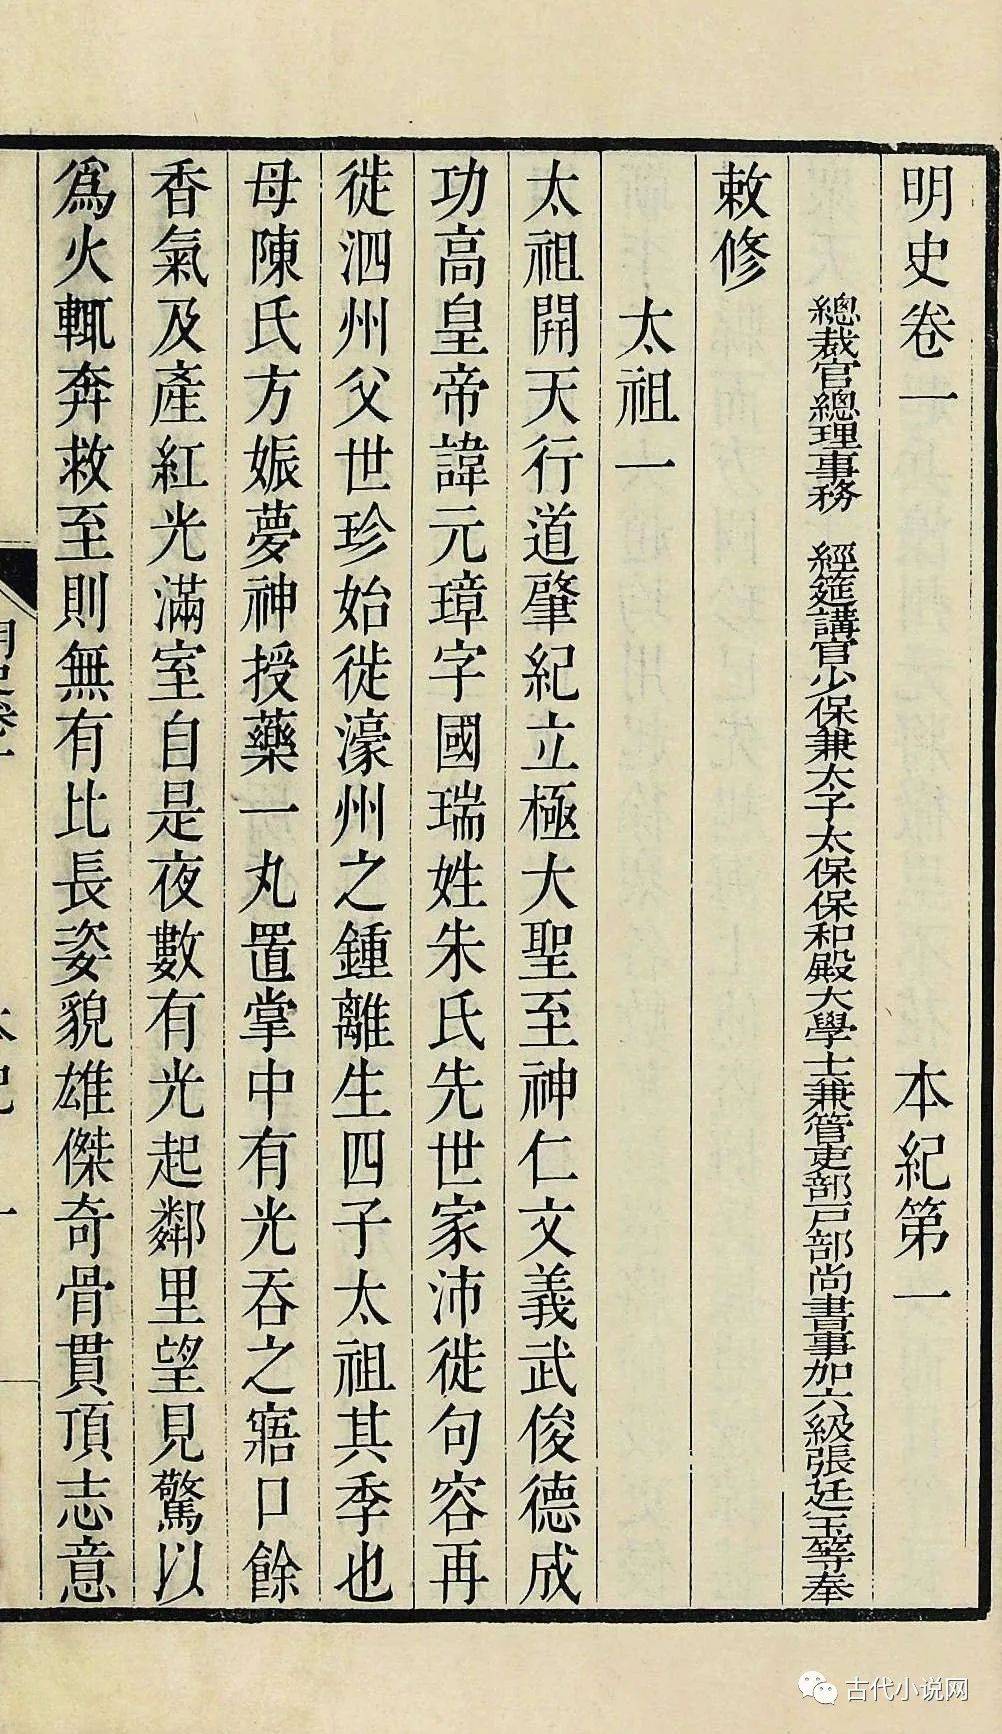 明史卷一 本紀第一
總裁官總理事務 經筵講官少保兼太子太保保和殿大學士兼管吏部戶部尚書事加六級張廷玉等奉
敕修
太祖一
太祖開天行道肇紀立極大聖至神仁文義武俊德成
功高皇帝諱元璋字國瑞姓朱氏先世家沛徙句容再
徙泗州父世珍始徙濠州之鍾離生四子太祖其季也
母陳氏方娠夢神授藥一丸置掌中有光吞之寤口餘
香氣及產紅光滿室自是夜數有光起鄰里望見驚以
為火輒奔救至則無有比長姿貌雄傑奇骨貫頂志意
古代小说网